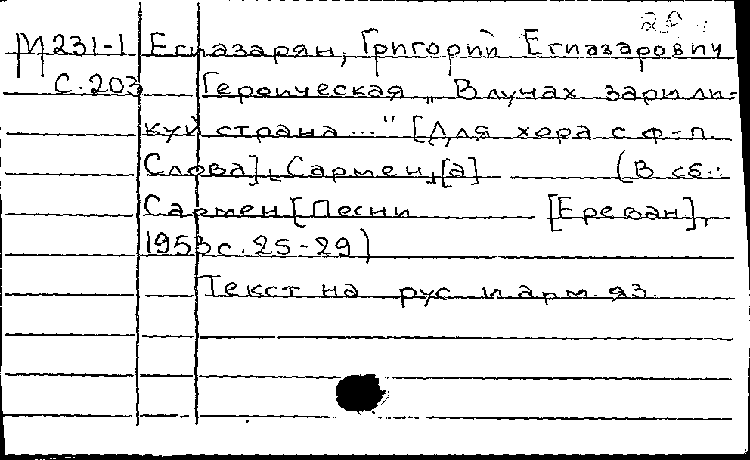 М231-1 Егиазарян, Григорий Егиазарович
С.203 Героическая „В лучах зари ли-
куй страна..." [Для хора с ф-п.
Слова], Сармен,[а] (В сб.:
Сармен [Песни [Ереван],
1953 с. 25-29)
Текст на рус и арм яз